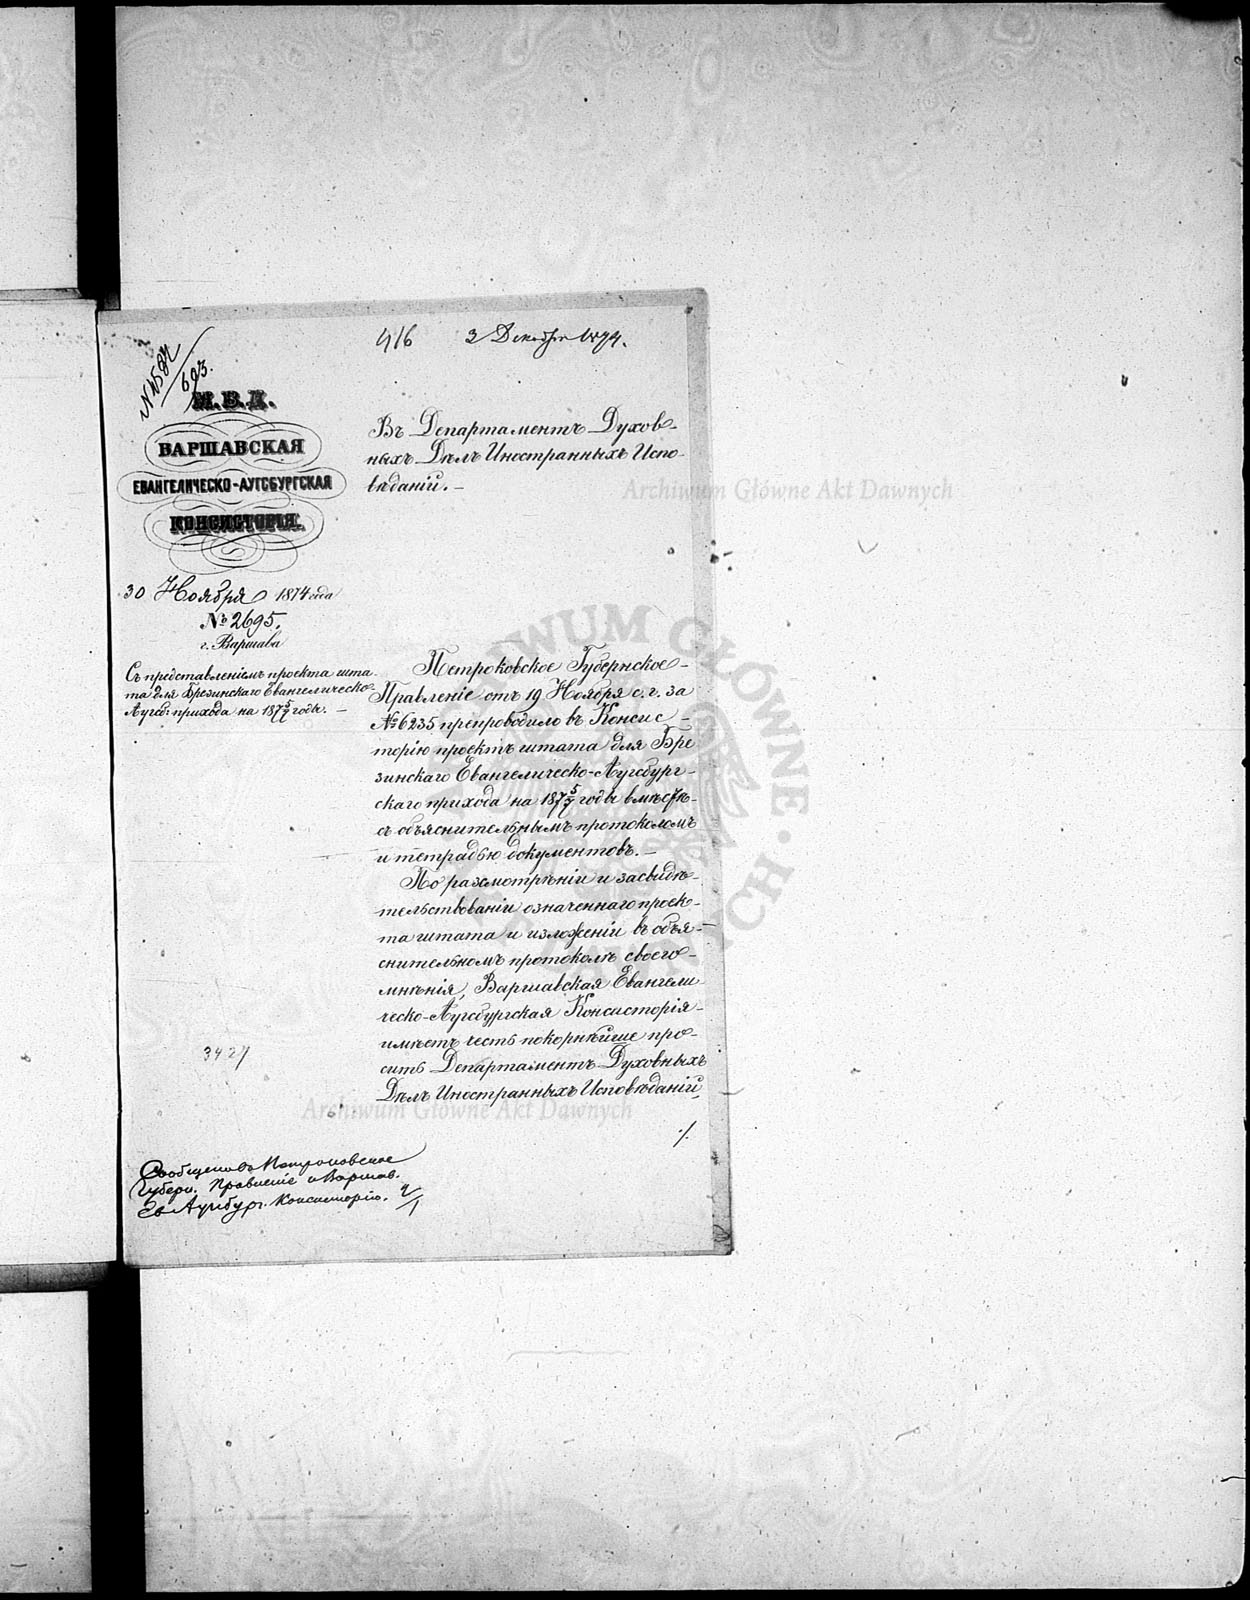 416 3 Декабря 1874.
№4584/693.
М.В.Д.
ВАРШАВСКАЯ
ЕВАНГЕЛИЧЕСКО-АУГСБУРГСКАЯ
КОНСИСТОРІЯ.
30 Ноября 1874 года
№ 2695.
г. Варшава
Съ представленіемъ проекта шта-
та для Брезинскаго Евангелическо-
Аугсб: прихода на 187 5/7 годы. —
Въ Департаментъ Духов-
ныхъ Дѣлъ Иностранныхъ Испо-
вѣданій. —
Петроковское Губернское
Правленіе отъ 19 Ноября с. г. за
№ 6235 препроводило въ Консис-
торію проектъ штата для Бре
зинскаго Евангелическо-Аугсбург-
скаго прихода на 187 5/7 годы вмѣстѣ
съ объяснительнымъ протоколомъ
и тетрадью документовъ. —
По разсмотрѣніи и засвидѣ-
тельствованіи означеннаго проек-
та штата и изложеніи въ объя-
снительномъ протоколѣ своего
мнѣнія, Варшавская Евангели
ческо-Аугсбургская Консисторія
имѣетъ честь покорнѣйше про-
сить Департаментъ Духовныхъ
Дѣлъ Иностранныхъ Исповѣданій,
./.
3427
Сообщено въ Петроковское
Губерн. Правленіе и Варшав.
Ев Аугсбург. Консисторію.
Archiwum Główne Akt Dawnych
Archiwum Główne Akt Dawnych